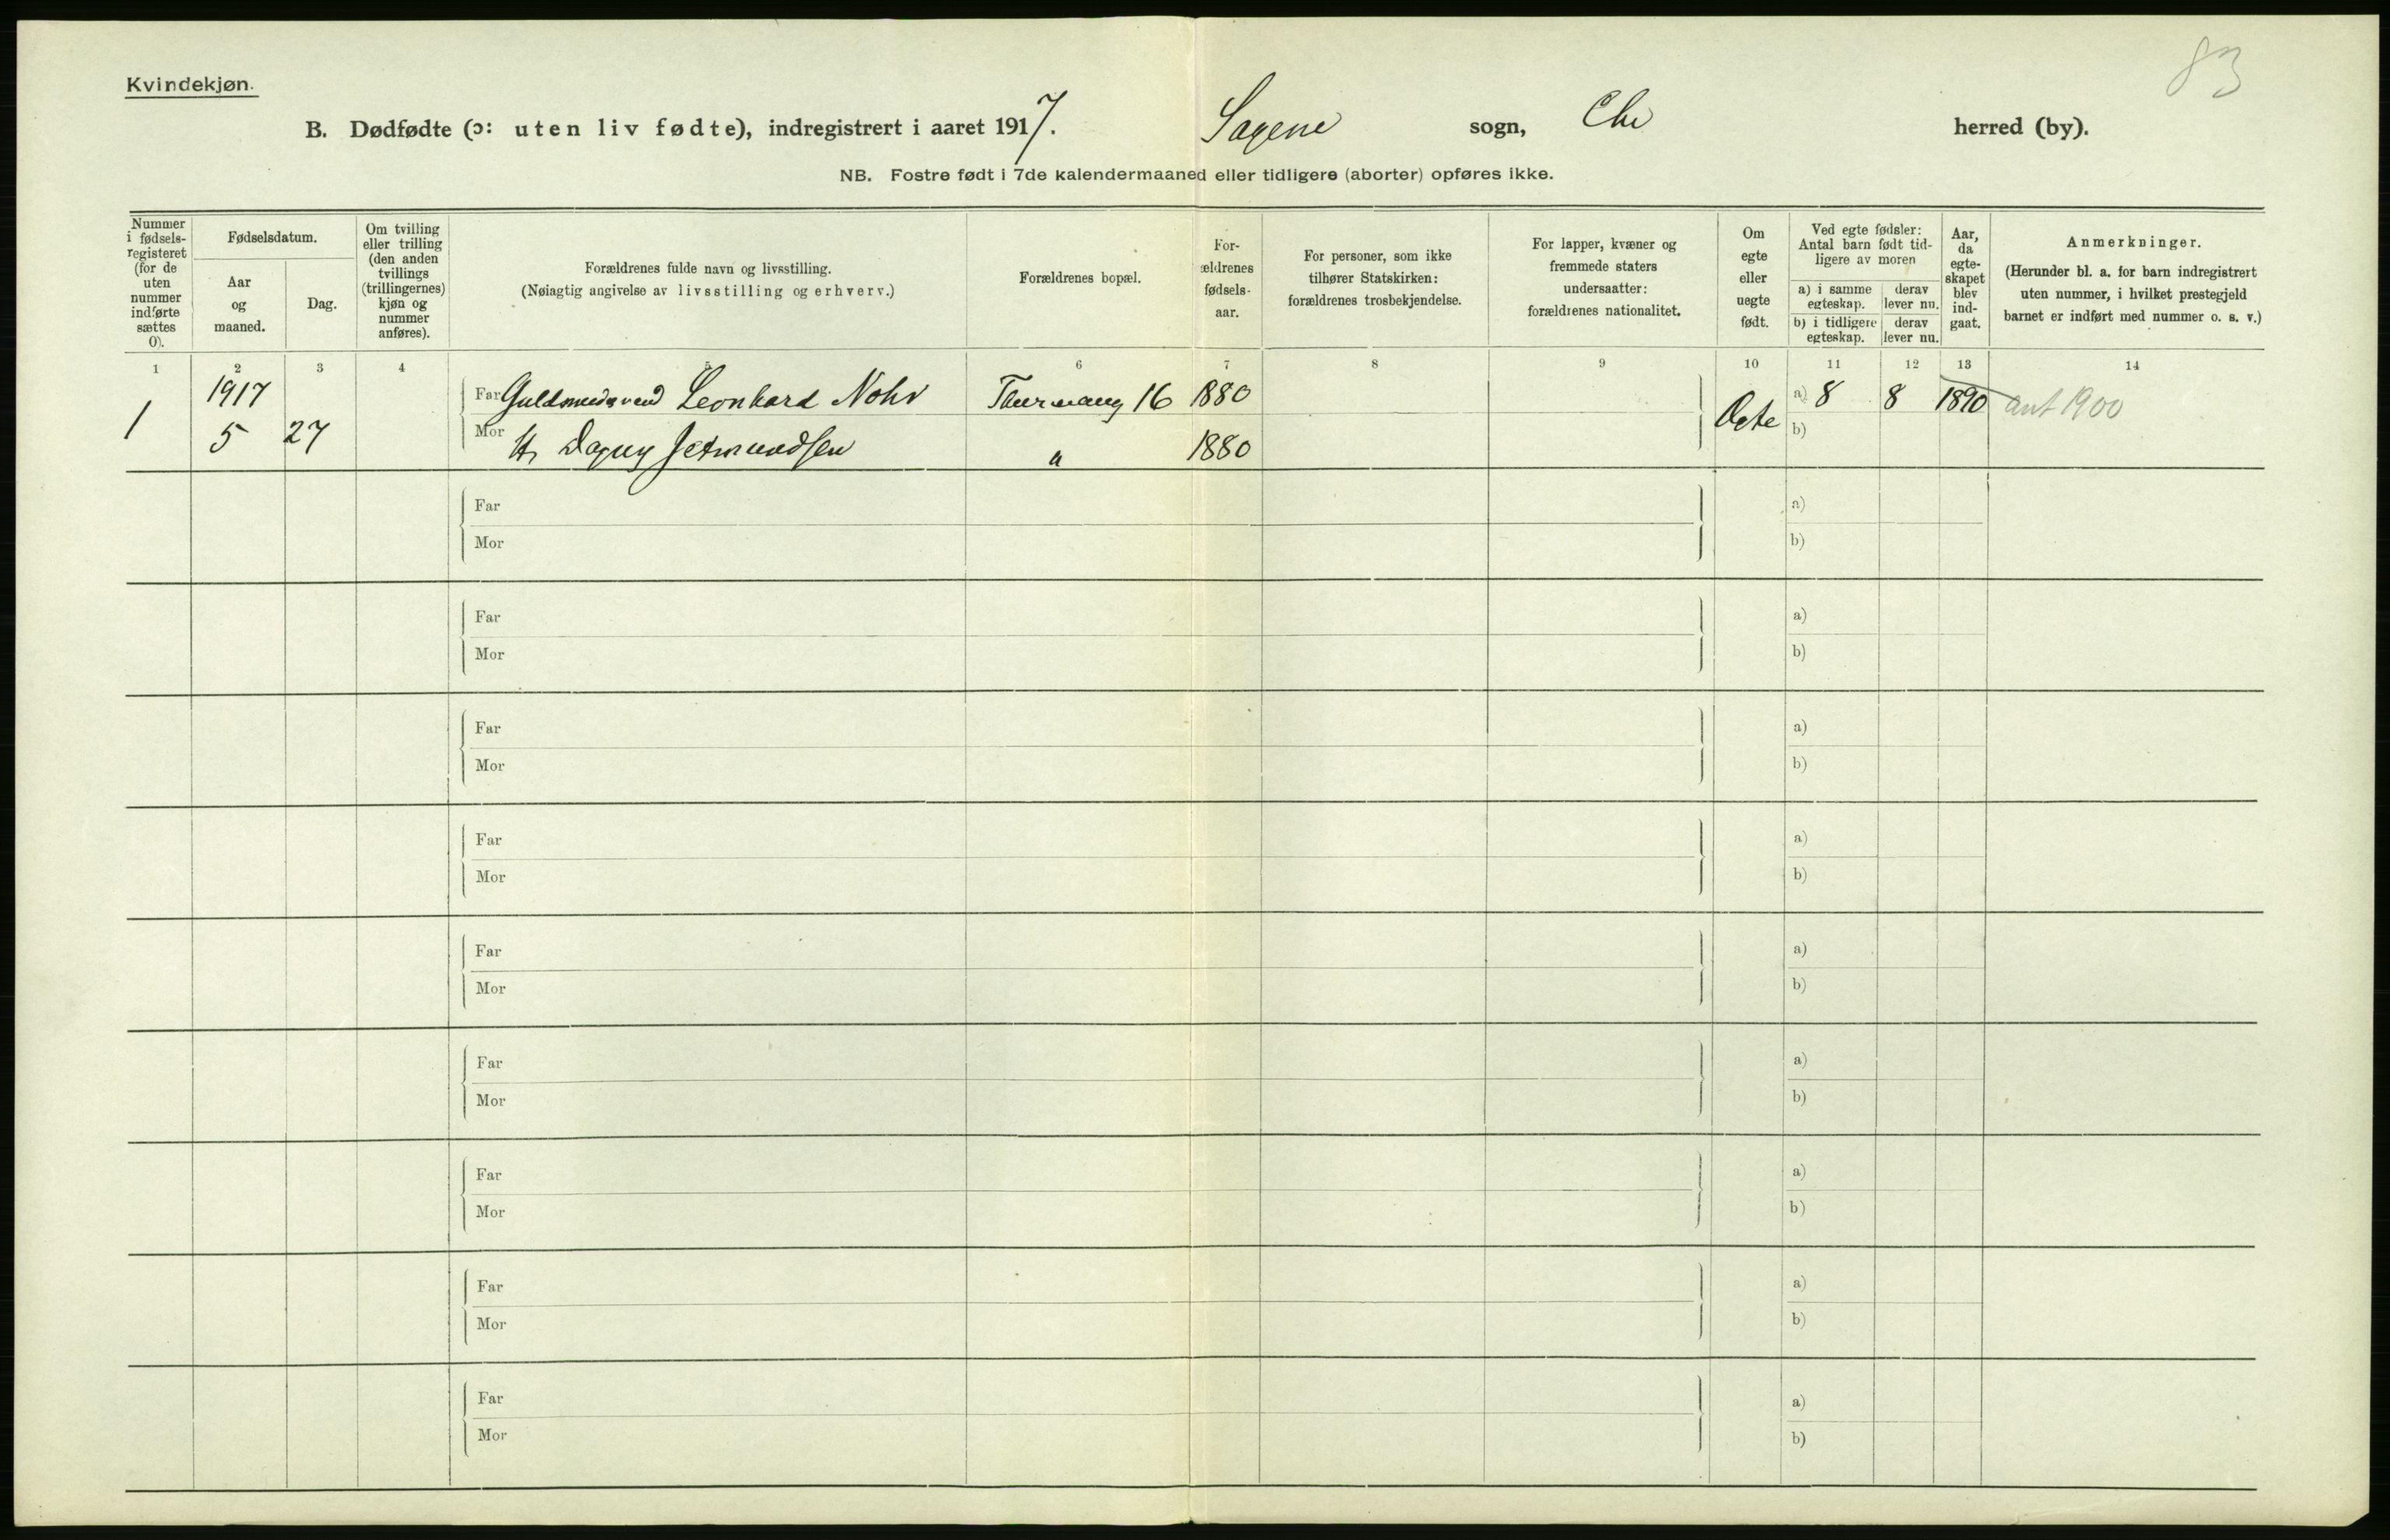 83
Kvindekjøn.
B. Dødfødte (ɔ: uten liv fødte), indregistrert i aaret 1917. Sagene sogn, Chr herred (by).
NB. Fostre født i 7de kalendermaaned eller tidligere (aborter) opføres ikke.
Nummer i fødsels-registeret (for de uten nummer indførte sættes 0).
Fødselsdatum.
Aar og maaned.
Dag.
Om tvilling eller trilling (den anden tvillings (trillingernes) kjøn og nummer anføres).
Forældrenes fulde navn og livsstilling.
(Nøiagtig angivelse av livsstilling og erhverv.)
Forældrenes bopæl.
For-ældrenes fødsels-aar.
For personer, som ikke tilhører Statskirken: forældrenes trosbekjendelse.
For lapper, kvæner og fremmede staters undersaatter: forældrenes nationalitet.
Om egte eller uegte født.
Ved egte fødsler: Antal barn født tid-ligere av moren
a) i samme egteskap.
derav lever nu.
b) i tidligere egteskap.
derav lever nu.
Aar, da egte-skapet blev ind-gaat.
Anmerkninger.
(Herunder bl. a. for barn indregistrert uten nummer, i hvilket prestegjeld barnet er indført med nummer o. s. v.)
1 2 3 4 5 6 7 8 9 10 11 12 13 14
1917
Far Guldsmedsvend Leonhard Nohr 16 1880
1 5 27 Egte a) 8 8 1890 ant 1900
Mor H. Dagny 1880 b)
Far a)
Mor b)
Far a)
Mor b)
Far a)
Mor b)
Far a)
Mor b)
Far a)
Mor b)
Far a)
Mor b)
Far a)
Mor b)
Far a)
Mor b)
Far a)
Mor b)